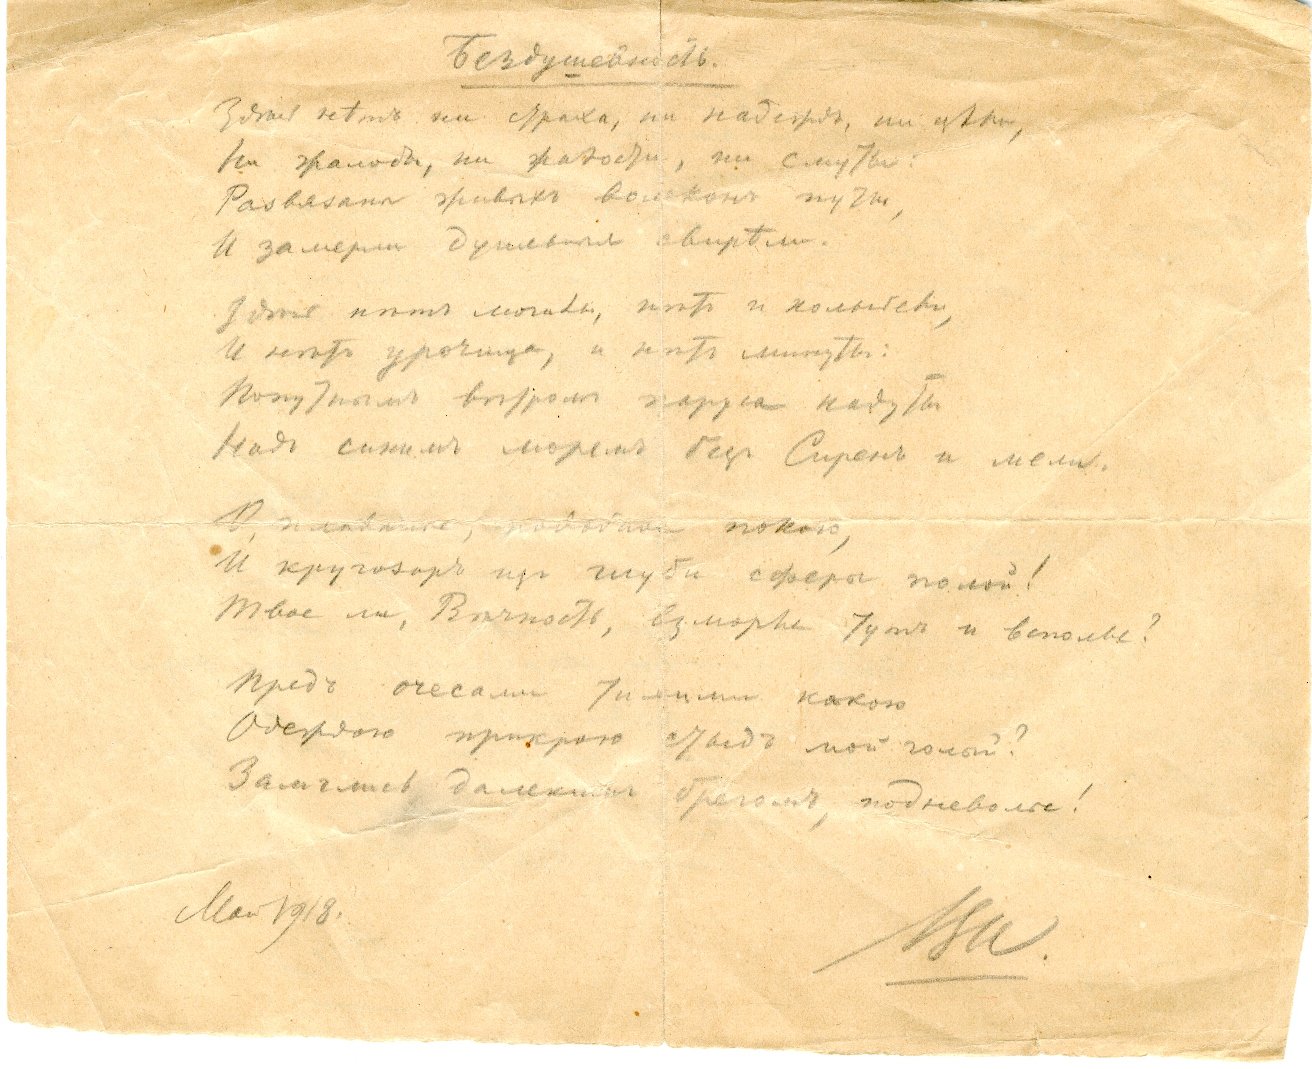 Бездушевность.
Здѣсь нѣтъ ни страха, ни надеждъ, ни цѣли,
Ни жалобы, ни жалости, ни смуты:
Развязаны живыхъ волоконъ путы,
И замерли душевныя свирѣли.
Здѣсь нѣтъ могилы, нѣтъ и колыбели,
И нѣтъ урочища, и нѣтъ минуты:
Попутнымъ вѣтромъ паруса надуты
Надъ синимъ моремъ безъ Сиренъ и мели.
О, плаванье, подобное покою,
И кругозоръ изъ глуби сферы полой!
Твое ли, Вѣчность, взморье тутъ и всполье?
Предъ очесами тихими какою
Одеждою прикрою стыдъ мой голый?
Замглись далекимъ брегомъ, подневолье!
Май 1918.